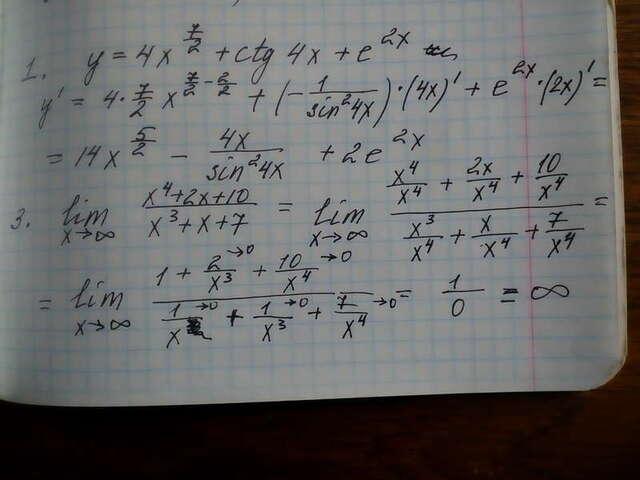 1. y = 4x^(7/2) + ctg 4x + e^(2x)
y' = 4 · 7/2 x^(7/2 - 2/2) + (- 1/sin²4x) · (4x)' + e^(2x) · (2x)' =
= 14x^(5/2) - 4x/sin²4x + 2e^(2x)
3. lim x→∞ (x⁴+2x+10)/(x³+x+7) = lim x→∞ (x⁴/x⁴ + 2x/x⁴ + 10/x⁴)/(x³/x⁴ + x/x⁴ + 7/x⁴) =
= lim x→∞ (1 + 2/x³ →0 + 10/x⁴ →0)/(1/x →0 + 1/x³ →0 + 7/x⁴ →0) = 1/0 = ∞